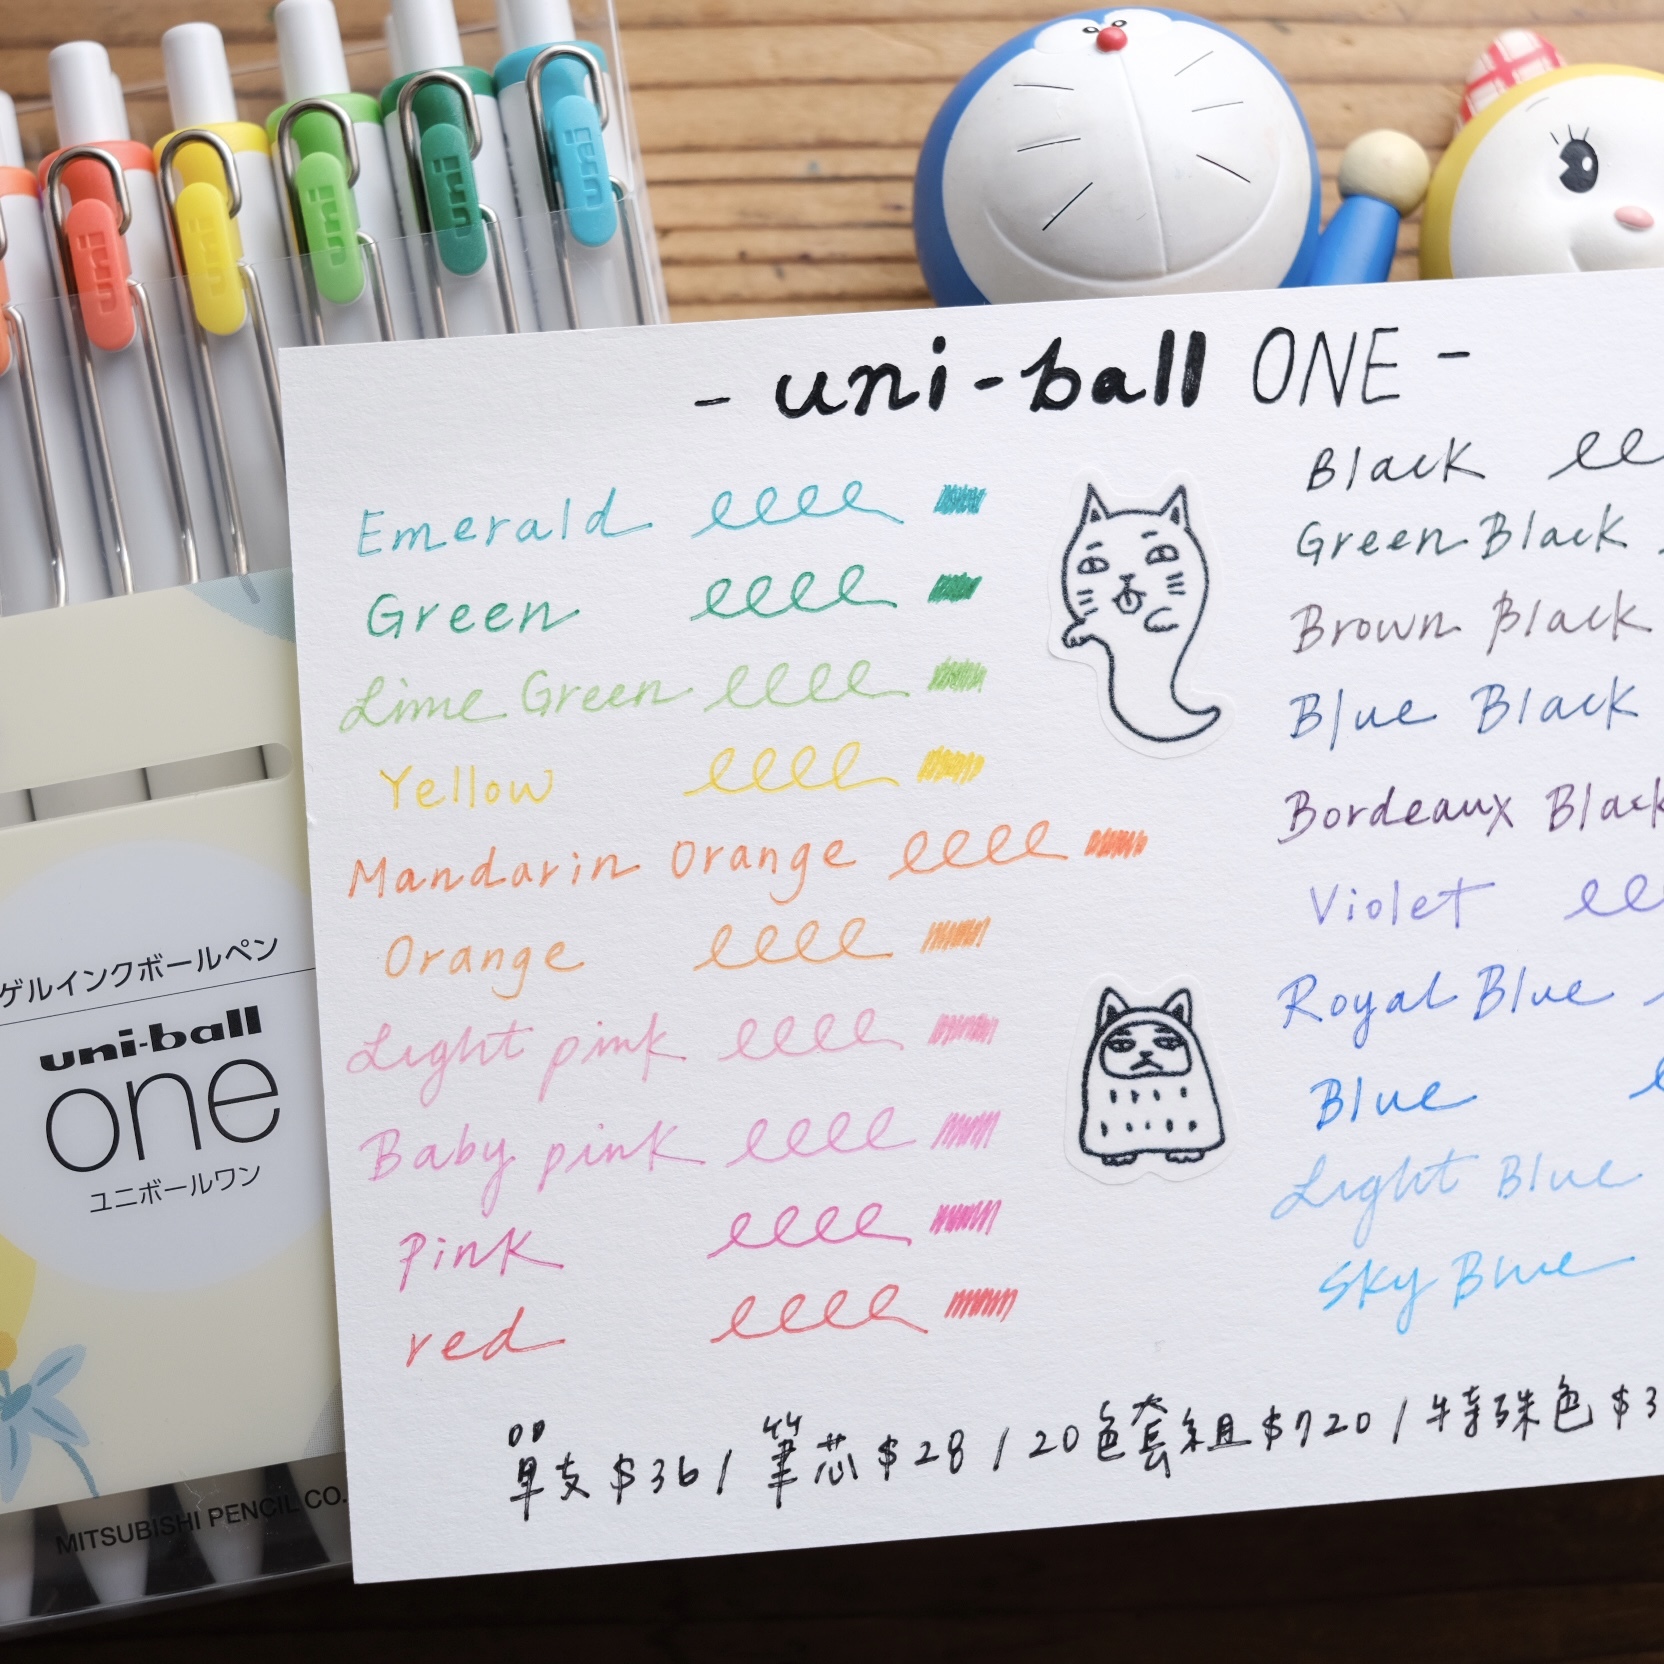 uni
uni
uni
uni
uni
- uni-ball ONE -
Emerald
Green
Lime Green
Yellow
Mandarin Orange
Orange
Light pink
Baby pink
Pink
red
Black
Green Black
Brown Black
Blue Black
Bordeaux Black
Violet
Royal Blue
Blue
Light Blue
Sky Blue
單支 $36 / 筆芯 $28 / 20色套組 $720 / 特殊色 $3
ゲルインクボールペン
uni-ball
one
ユニボールワン
MITSUBISHI PENCIL CO.